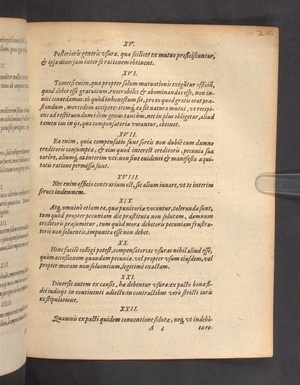 XV.
Posterioris generis vsuræ, quæ scilicet ex mutuo proficiscuntur,
& ipsæ diuersam inter se rationem obtinent.
XVI.
Tametsi enim, quæ propter solum mutuationis exigūtur officiū,
quod debet esse gratuitum, execrobiles & abominandæ esse, non in-
uiti concedamus: eò quòd inhonestum sit, pro eo quod gratis erat præ-
standum, mercedem accipere: etenim, ea est natura mutui, vt recipi-
ens ad restituendum idem genus tantùm, nec in plus obligetur, aliud
tamen ius in ijs, quæ compensatoriæ vocantur, obtinet.
XVII.
Ea enim, quia compensatio sunt sortis non dubiè cum damno
creditoris coniunctæ, & eius quod interest creditoris, pecunia sua
carere, alium, ea interim vti: non sine euidenti & manifesta æqui-
tatis ratione permissæ sunt.
XVIII.
Nec enim officio contrarium est, sic alium iuuare, vt te interim
serues indemnem.
XIX.
Atq, omninò etiam eæ, quæ punitoriæ vocantur, tolerandæ sunt,
tum quòd propter pecuniam die præstituta non solutam, damnum
creditoris præsumitur, tum quòd mora debitoris pecuniam frustra-
toriè non soluentis, impunita esse non debet.
XX.
Hinc facilè colligi potest, compensatorias vsuras nihil aliud esse,
quàm accessionem quandam pecuniæ, vel propter vsum eiusdem, vel
propter moram non soluentium, legitimè exactam.
XXI.
Diuersis autem ex causis, hæ debentur vsuræ: ex pacto bonæ fi-
dei iudicijs in continenti adiecto: in contractibus verò stricti iuris
ex stipulatione.
XXII.
Quamuis ex pacti quidem conuentione solutæ, neq, vt indebi-
A 2 tæ re-